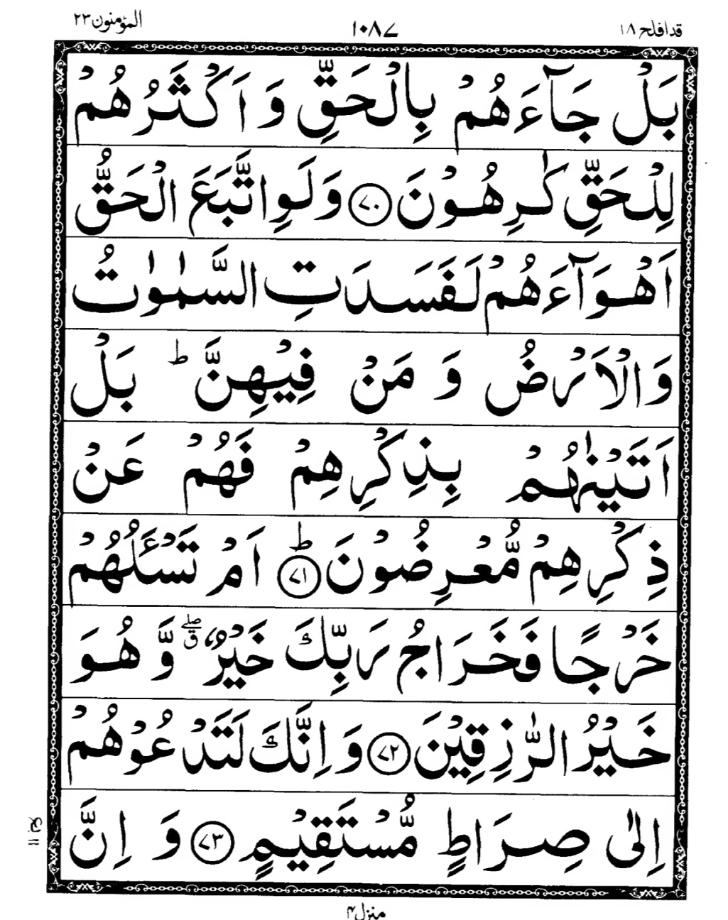 قدافلح ۱۸ ۱۰۸۷ المؤمنون ۲۳
بَلْ جَآءَهُمْ بِالْحَقِّ وَاَكْثَرُهُمْ
لِلْحَقِّ كٰرِهُوْنَ ﴿۷۰﴾ وَلَوِ اتَّبَعَ الْحَقُّ
اَهْوَآءَهُمْ لَفَسَدَتِ السَّمٰوٰتُ
وَالْاَرْضُ وَ مَنْ فِيْهِنَّ ؕ بَلْ
اَتَيْنٰهُمْ بِذِكْرِهِمْ فَهُمْ عَنْ
ذِكْرِهِمْ مُّعْرِضُوْنَ ؕ﴿۷۱﴾ اَمْ تَسْـَٔلُهُمْ
خَرْجًا فَخَرَاجُ رَبِّكَ خَيْرٌ ۖق وَّ هُوَ
خَيْرُ الرّٰزِقِيْنَ ﴿۷۲﴾ وَ اِنَّكَ لَتَدْعُوْهُمْ
اِلٰى صِرَاطٍ مُّسْتَقِيْمٍ ﴿۷۳﴾ وَ اِنَّ
منزل ۴